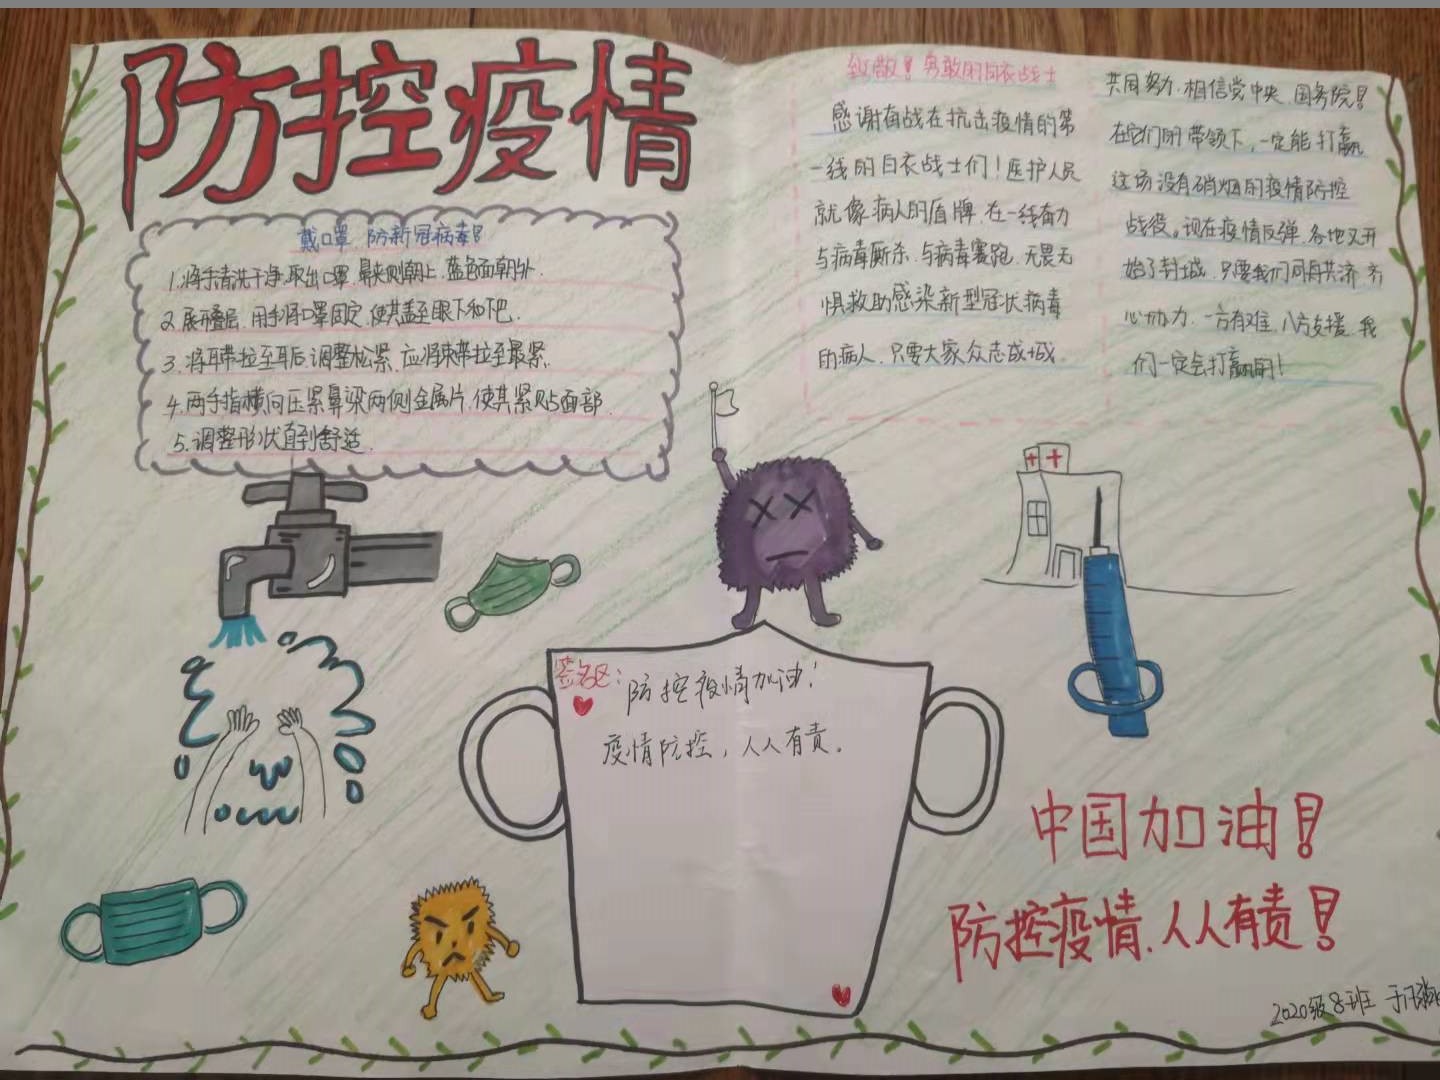 防控疫情
戴口罩 防新冠病毒!
1.将手清洗干净,取出口罩,鼻夹则朝上,蓝色面朝外.
2.展开叠层,用手将口罩固定,使其盖至眼下和下巴.
3.将耳带拉至耳后,调整松紧,应将束带拉至最紧.
4.两手指横向压紧鼻梁两侧金属片,使其紧贴与面部.
5.调整形状直到舒适.
致敬!勇敢的白衣战士
感谢有战在抗击疫情的第
一线的白衣战士们!医护人员
就像病人的盾牌,在一线奋力
与病毒厮杀,与病毒赛跑,无畏无
惧救助感染新型冠状病毒
的病人,只要大家众志成城
共同努力,相信党中央、国务院!
在它们的带领下,一定能打赢
这场没有硝烟的疫情防控
战役。现在疫情反弹,各地又开
始了封城,只要我们同舟共济,齐
心协力,一方有难,八方支援,我
们一定会打赢的!
签名区:
防控疫情加油!
疫情防控,人人有责。
中国加油!
防控疫情,人人有责!
2020级8班 于